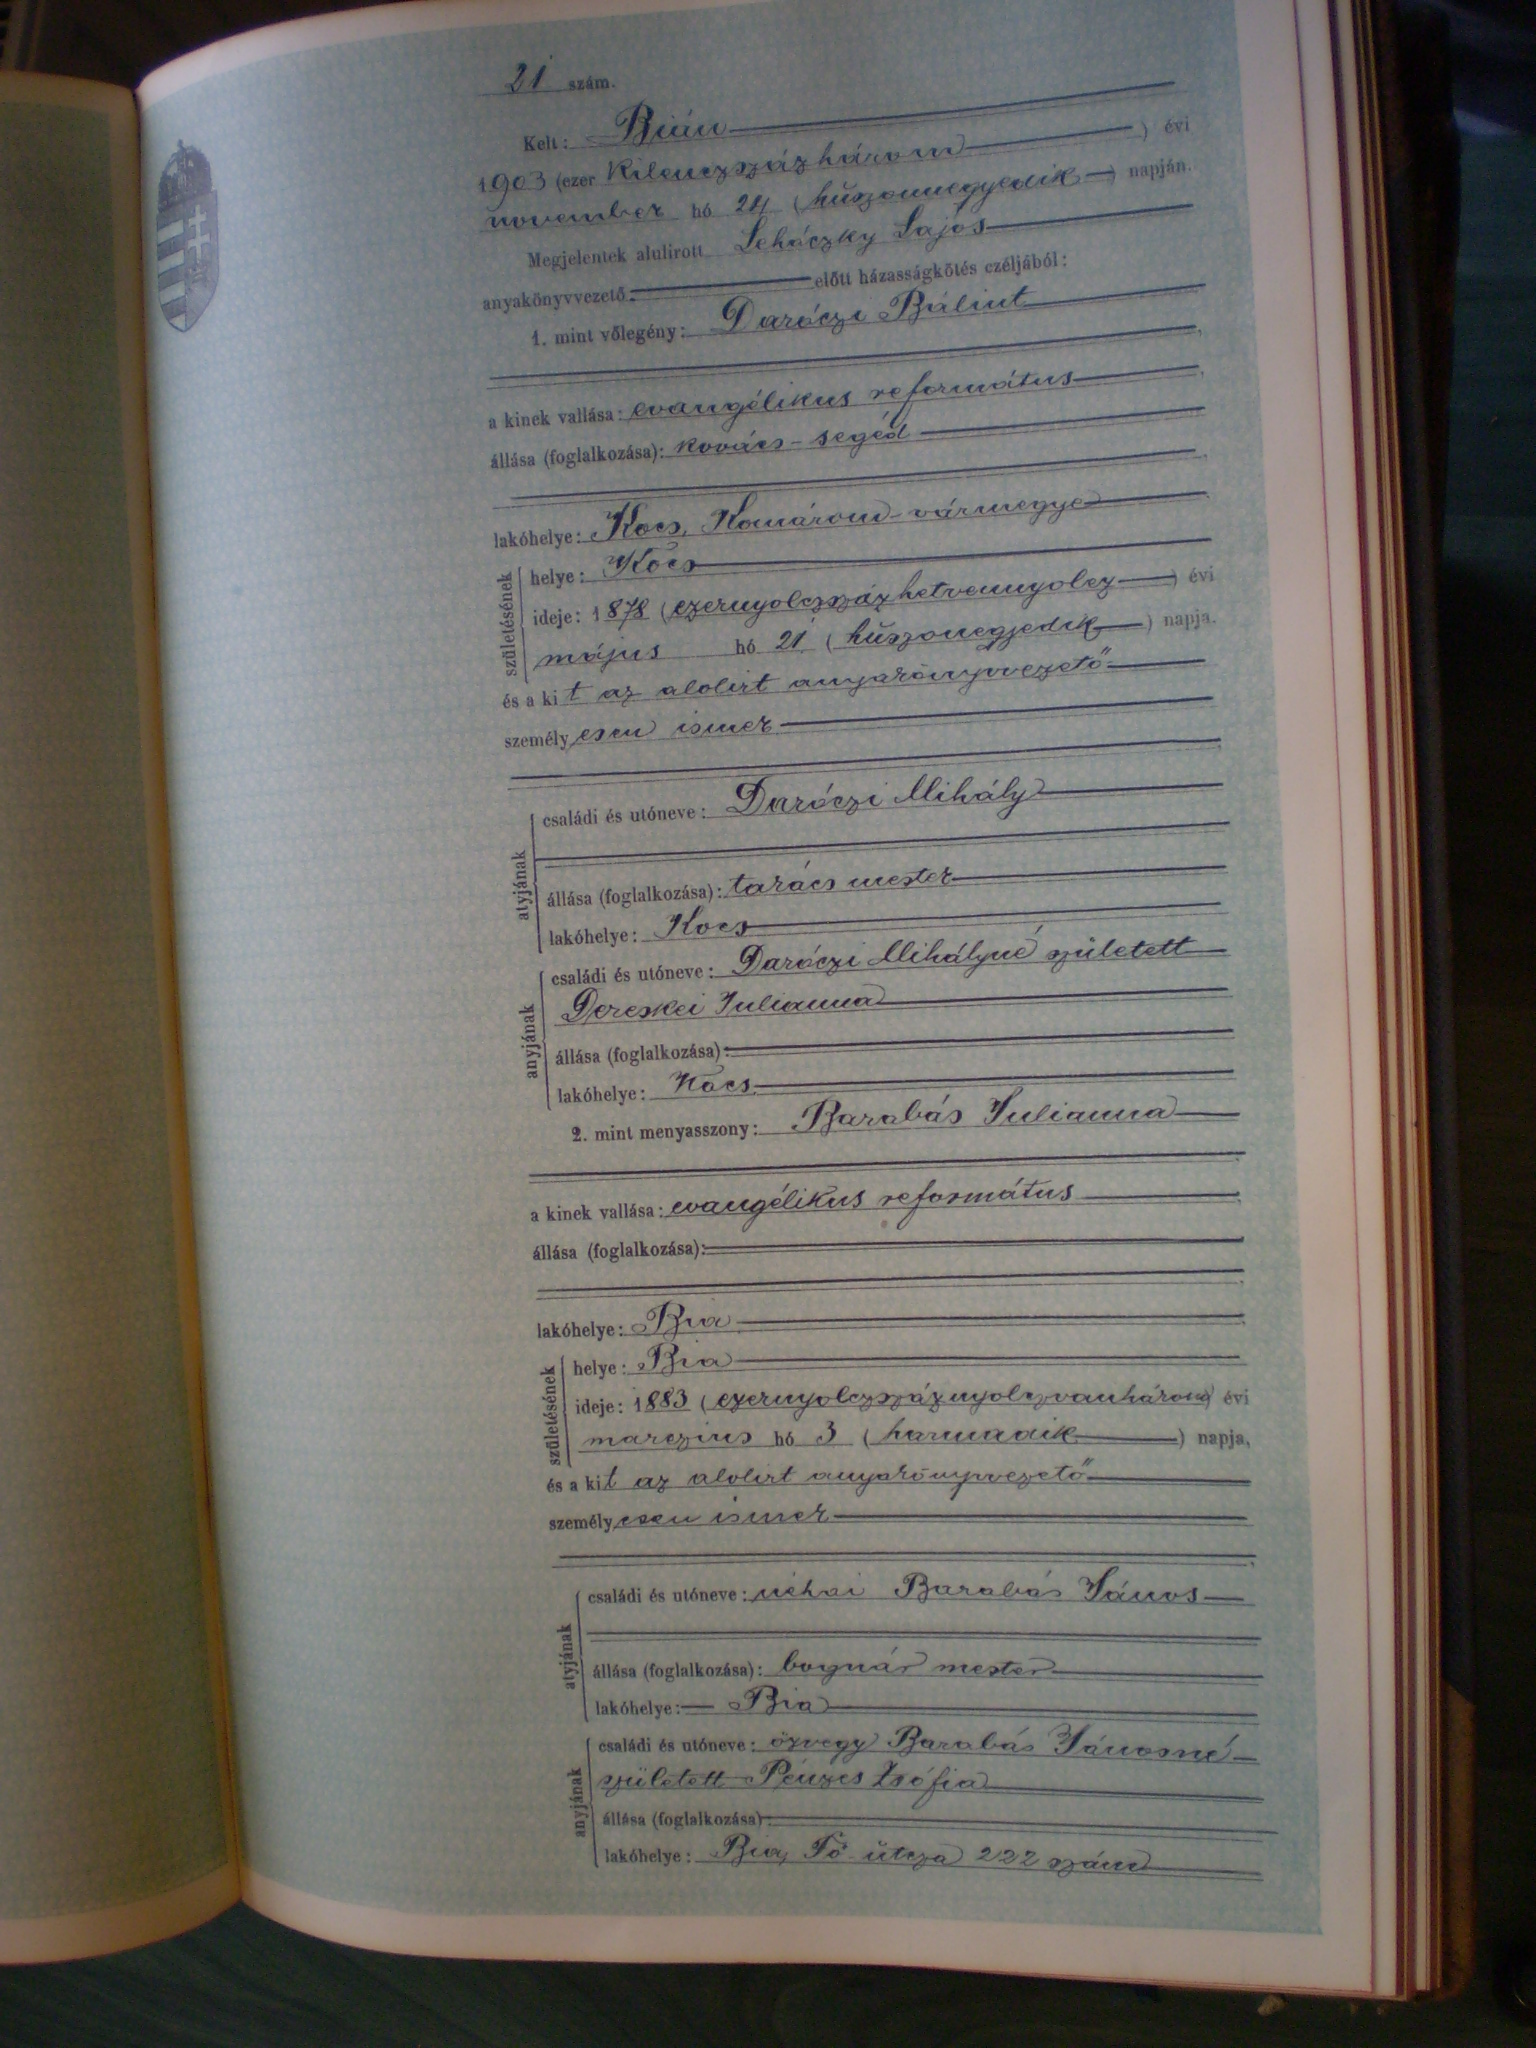 21 szám.
Kelt: Bián
1903 (ezer kilenczszázhárom) évi
november hó 24 (húszonnegyedik) napján.
Megjelentek alulirott Leháczky Lajos
anyakönyvvezető előtt házasságkötés czéljából:
1. mint vőlegény: Daróczi Bálint
a kinek vallása: evangélikus református
állása (foglalkozása): kovács-segéd
lakóhelye: Kocs, Komárom-vármegye
születésének
helye: Kocs
ideje: 1878 (ezernyolczszázhetvennyolcz) évi
május hó 21 (húszonegyedik) napja.
és a kit az alolirt anyakönyvvezető
személyesen ismer
atyjának
családi és utóneve: Daróczi Mihály
állása (foglalkozása): takács mester
lakóhelye: Kocs
anyjának
családi és utóneve: Daróczi Mihályné született
Dereskei Julianna
állása (foglalkozása):
lakóhelye: Kocs
2. mint menyasszony: Barabás Julianna
a kinek vallása: evangélikus református
állása (foglalkozása):
lakóhelye: Bia
születésének
helye: Bia
ideje: 1883 (ezernyolczszáznyolczvanhárom) évi
marczius hó 3 (harmadik) napja,
és a kit az alolirt anyakönyvvezető
személyesen ismer
atyjának
családi és utóneve: néhai Barabás János
állása (foglalkozása): bognár mester
lakóhelye: Bia
anyjának
családi és utóneve: özvegy Barabás Jánosné
született Pénzes Zsófia
állása (foglalkozása):
lakóhelye: Bia, Fő útcza 222 szám